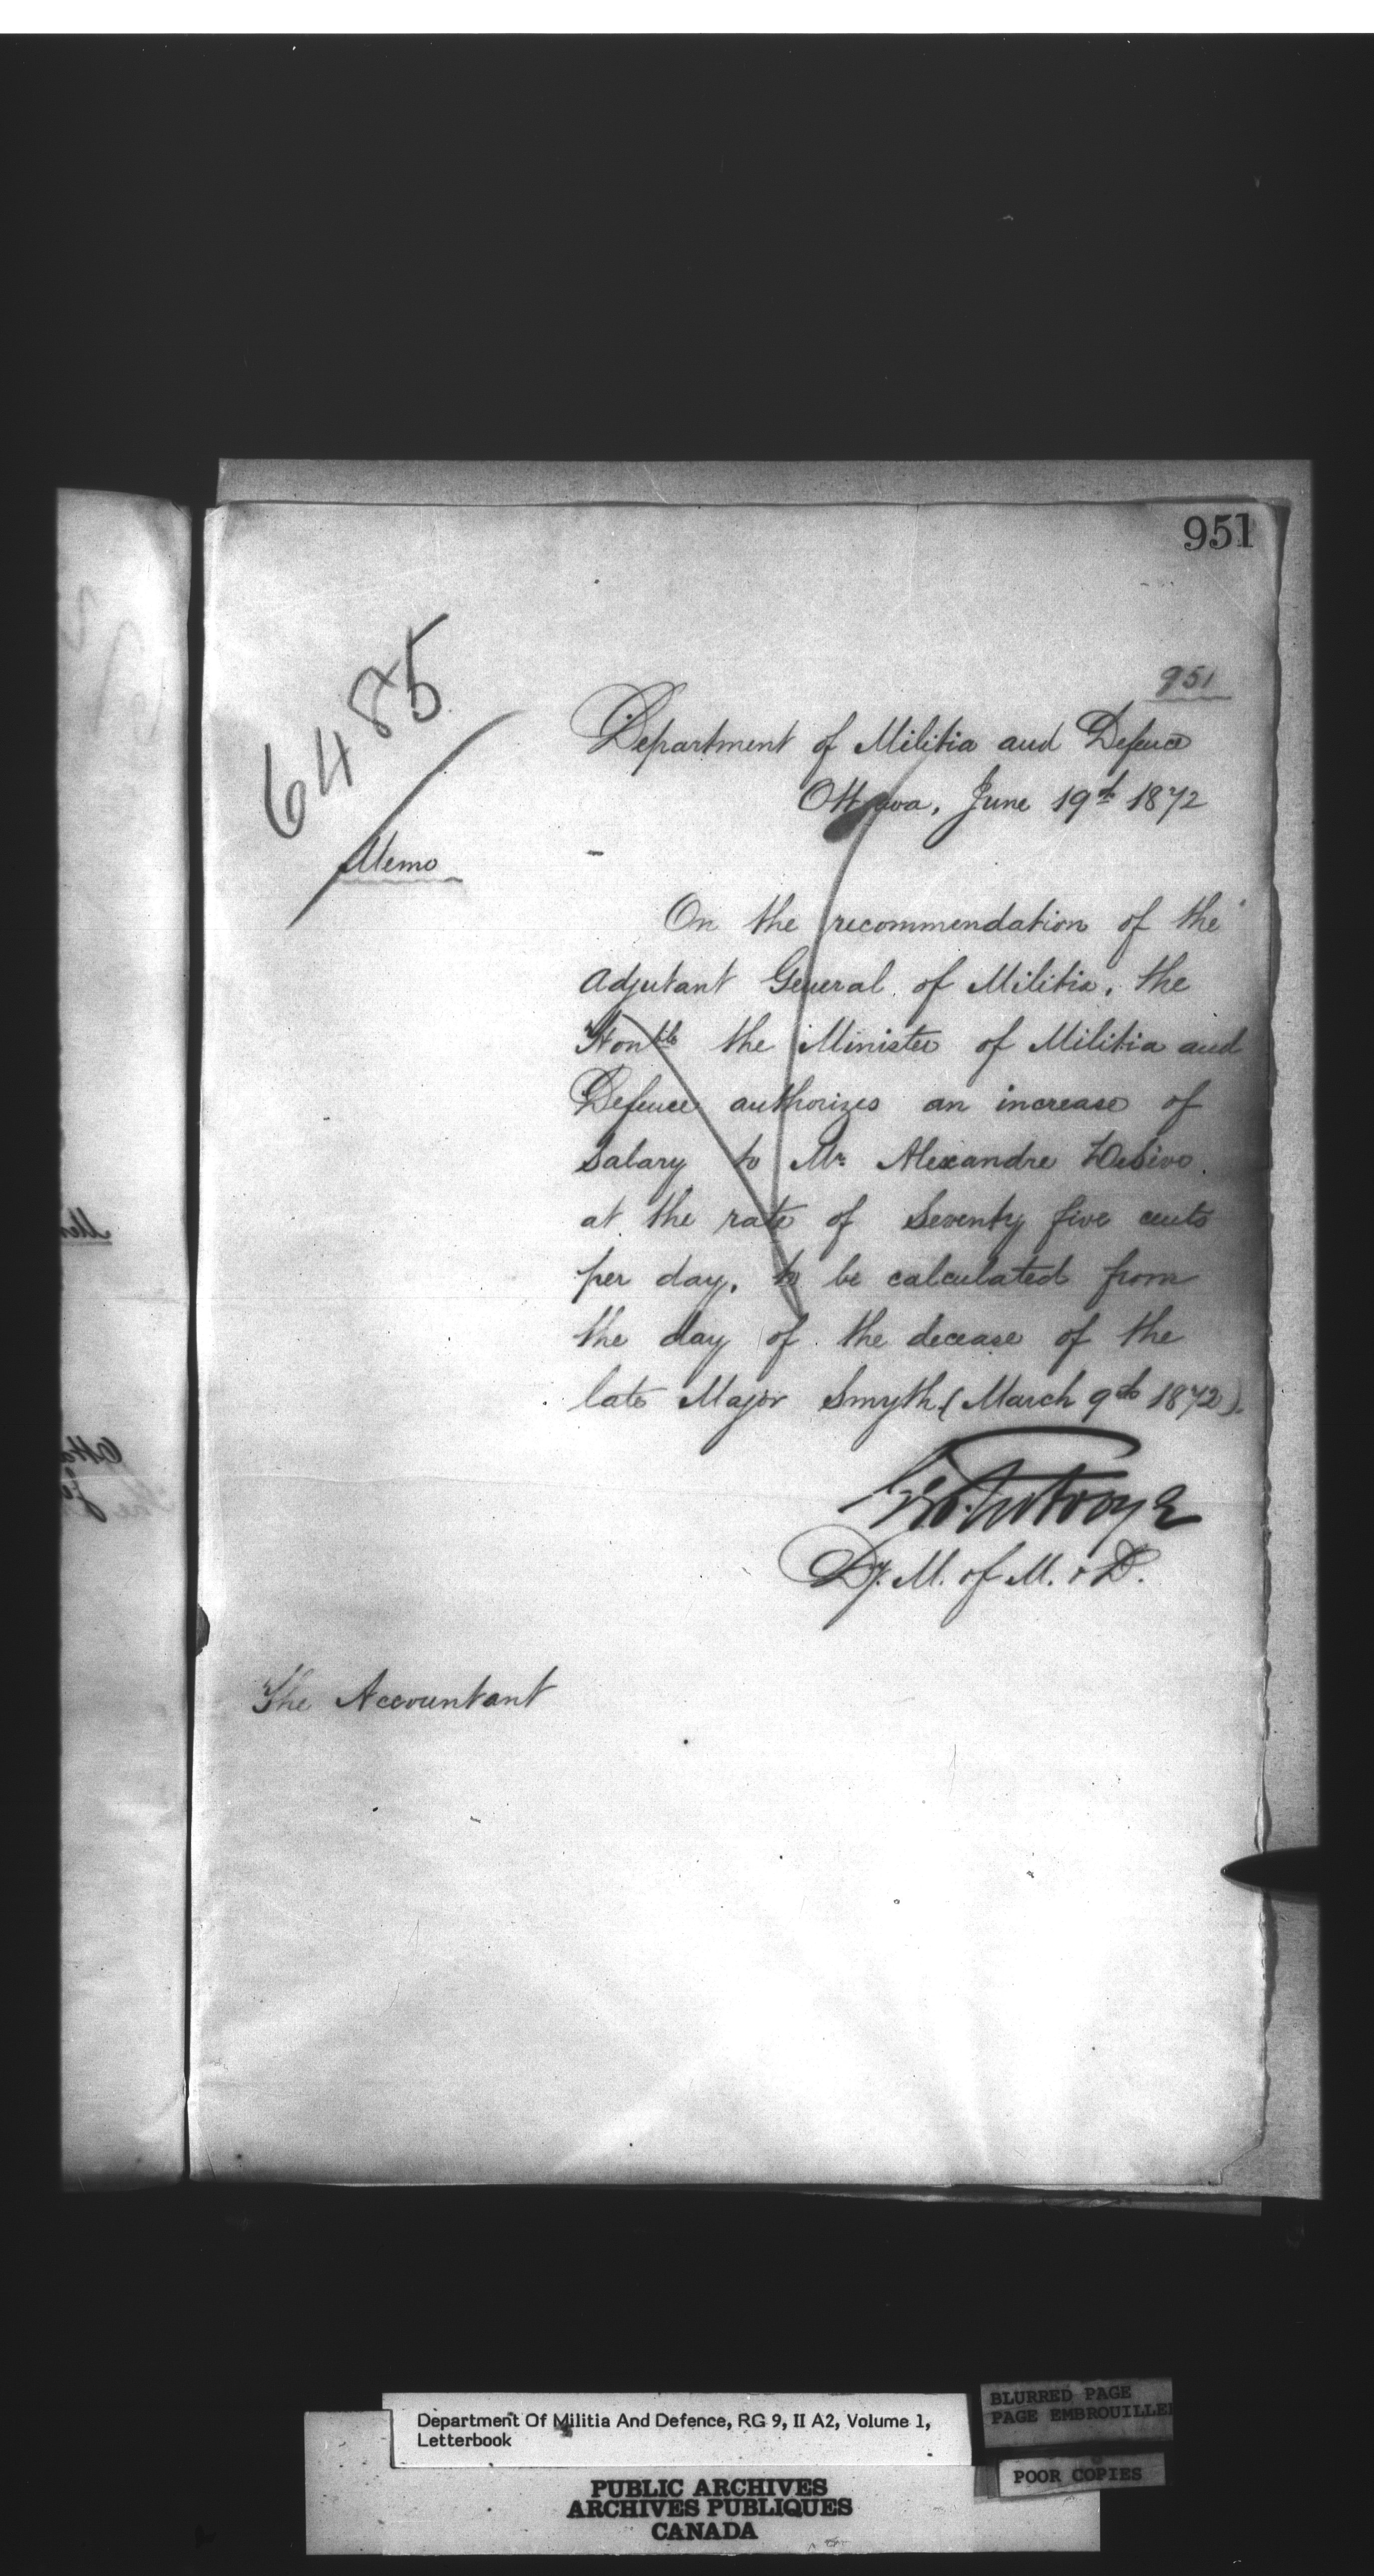 951
951
6485
Department of Militia and Defence
Ottawa, June 19th 1872
Memo
On the recommendation of the
Adjutant General of Militia, the
Honble the Minister of Militia and
Defence authorizes an increase of
Salary to Mr Alexandre
at the rate of Seventy five cents
per day, to be calculated from
the day of the decease of the
late Major Smyth (March 9th 1872).
Dy. M. of M. & D.
The Accountant
Department Of Militia And Defence, RG 9, II A2, Volume 1,
Letterbook
BLURRED PAGE
PAGE EMBROUILLEE
POOR COPIES
PUBLIC ARCHIVES
ARCHIVES PUBLIQUES
CANADA